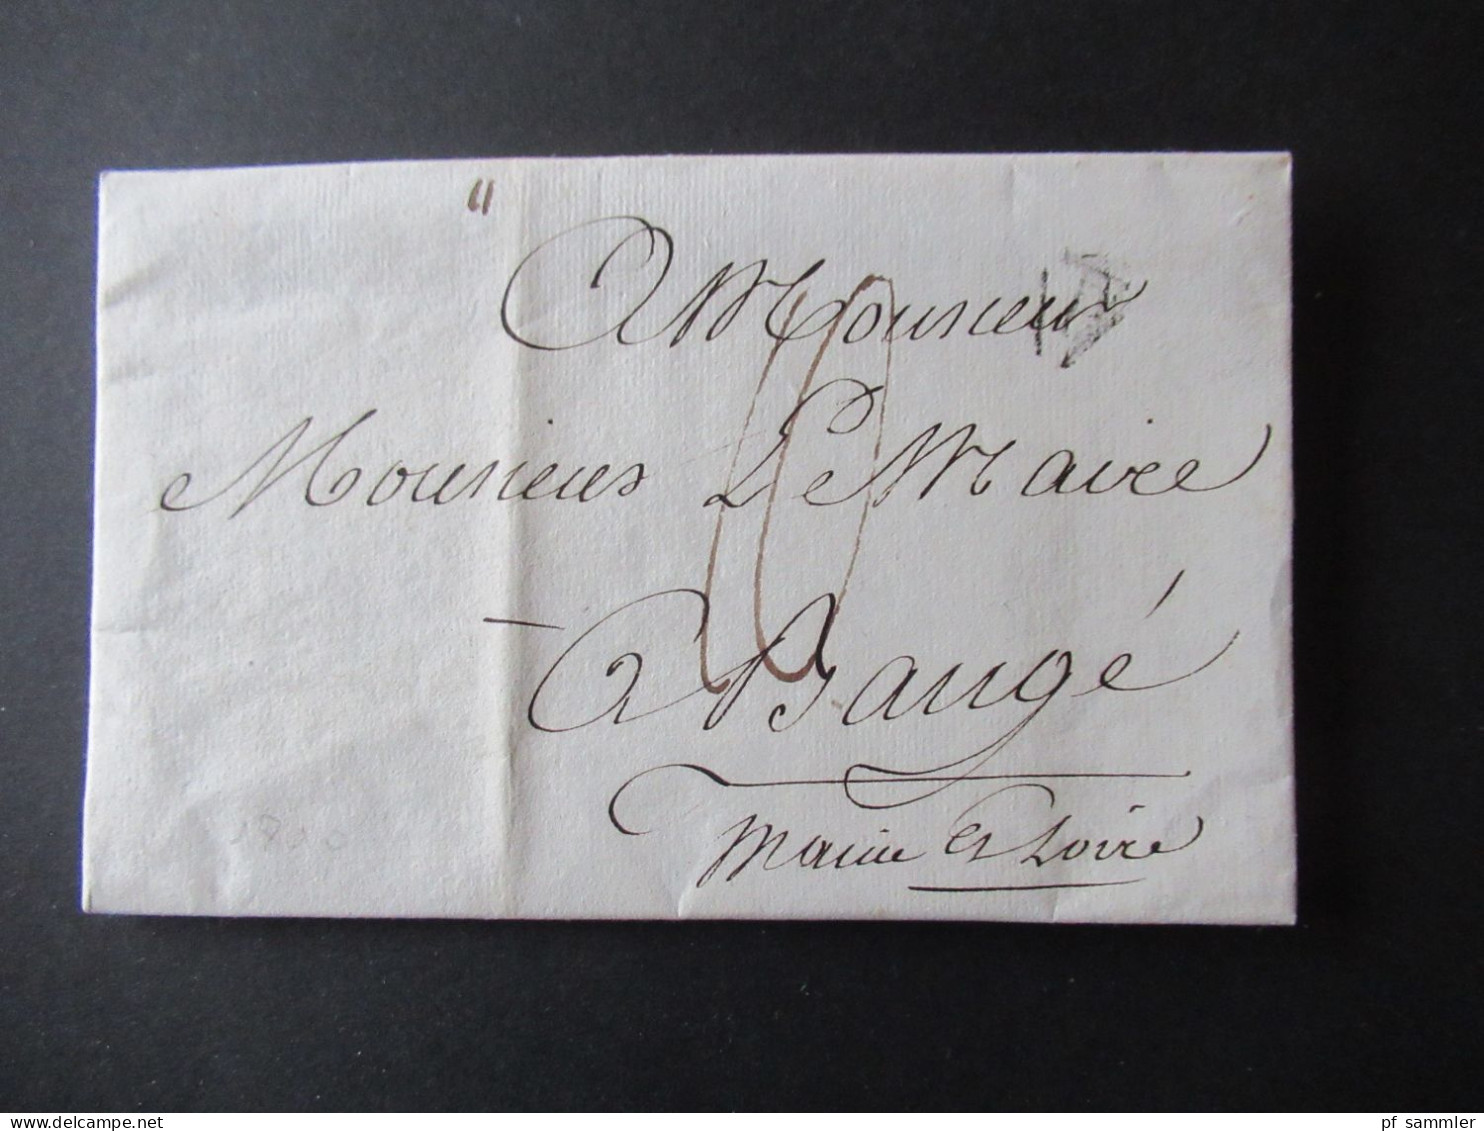 "
A Monsieur
Monsieur Le Maire
10
A Baugé
Maine et Loire
pf sammler